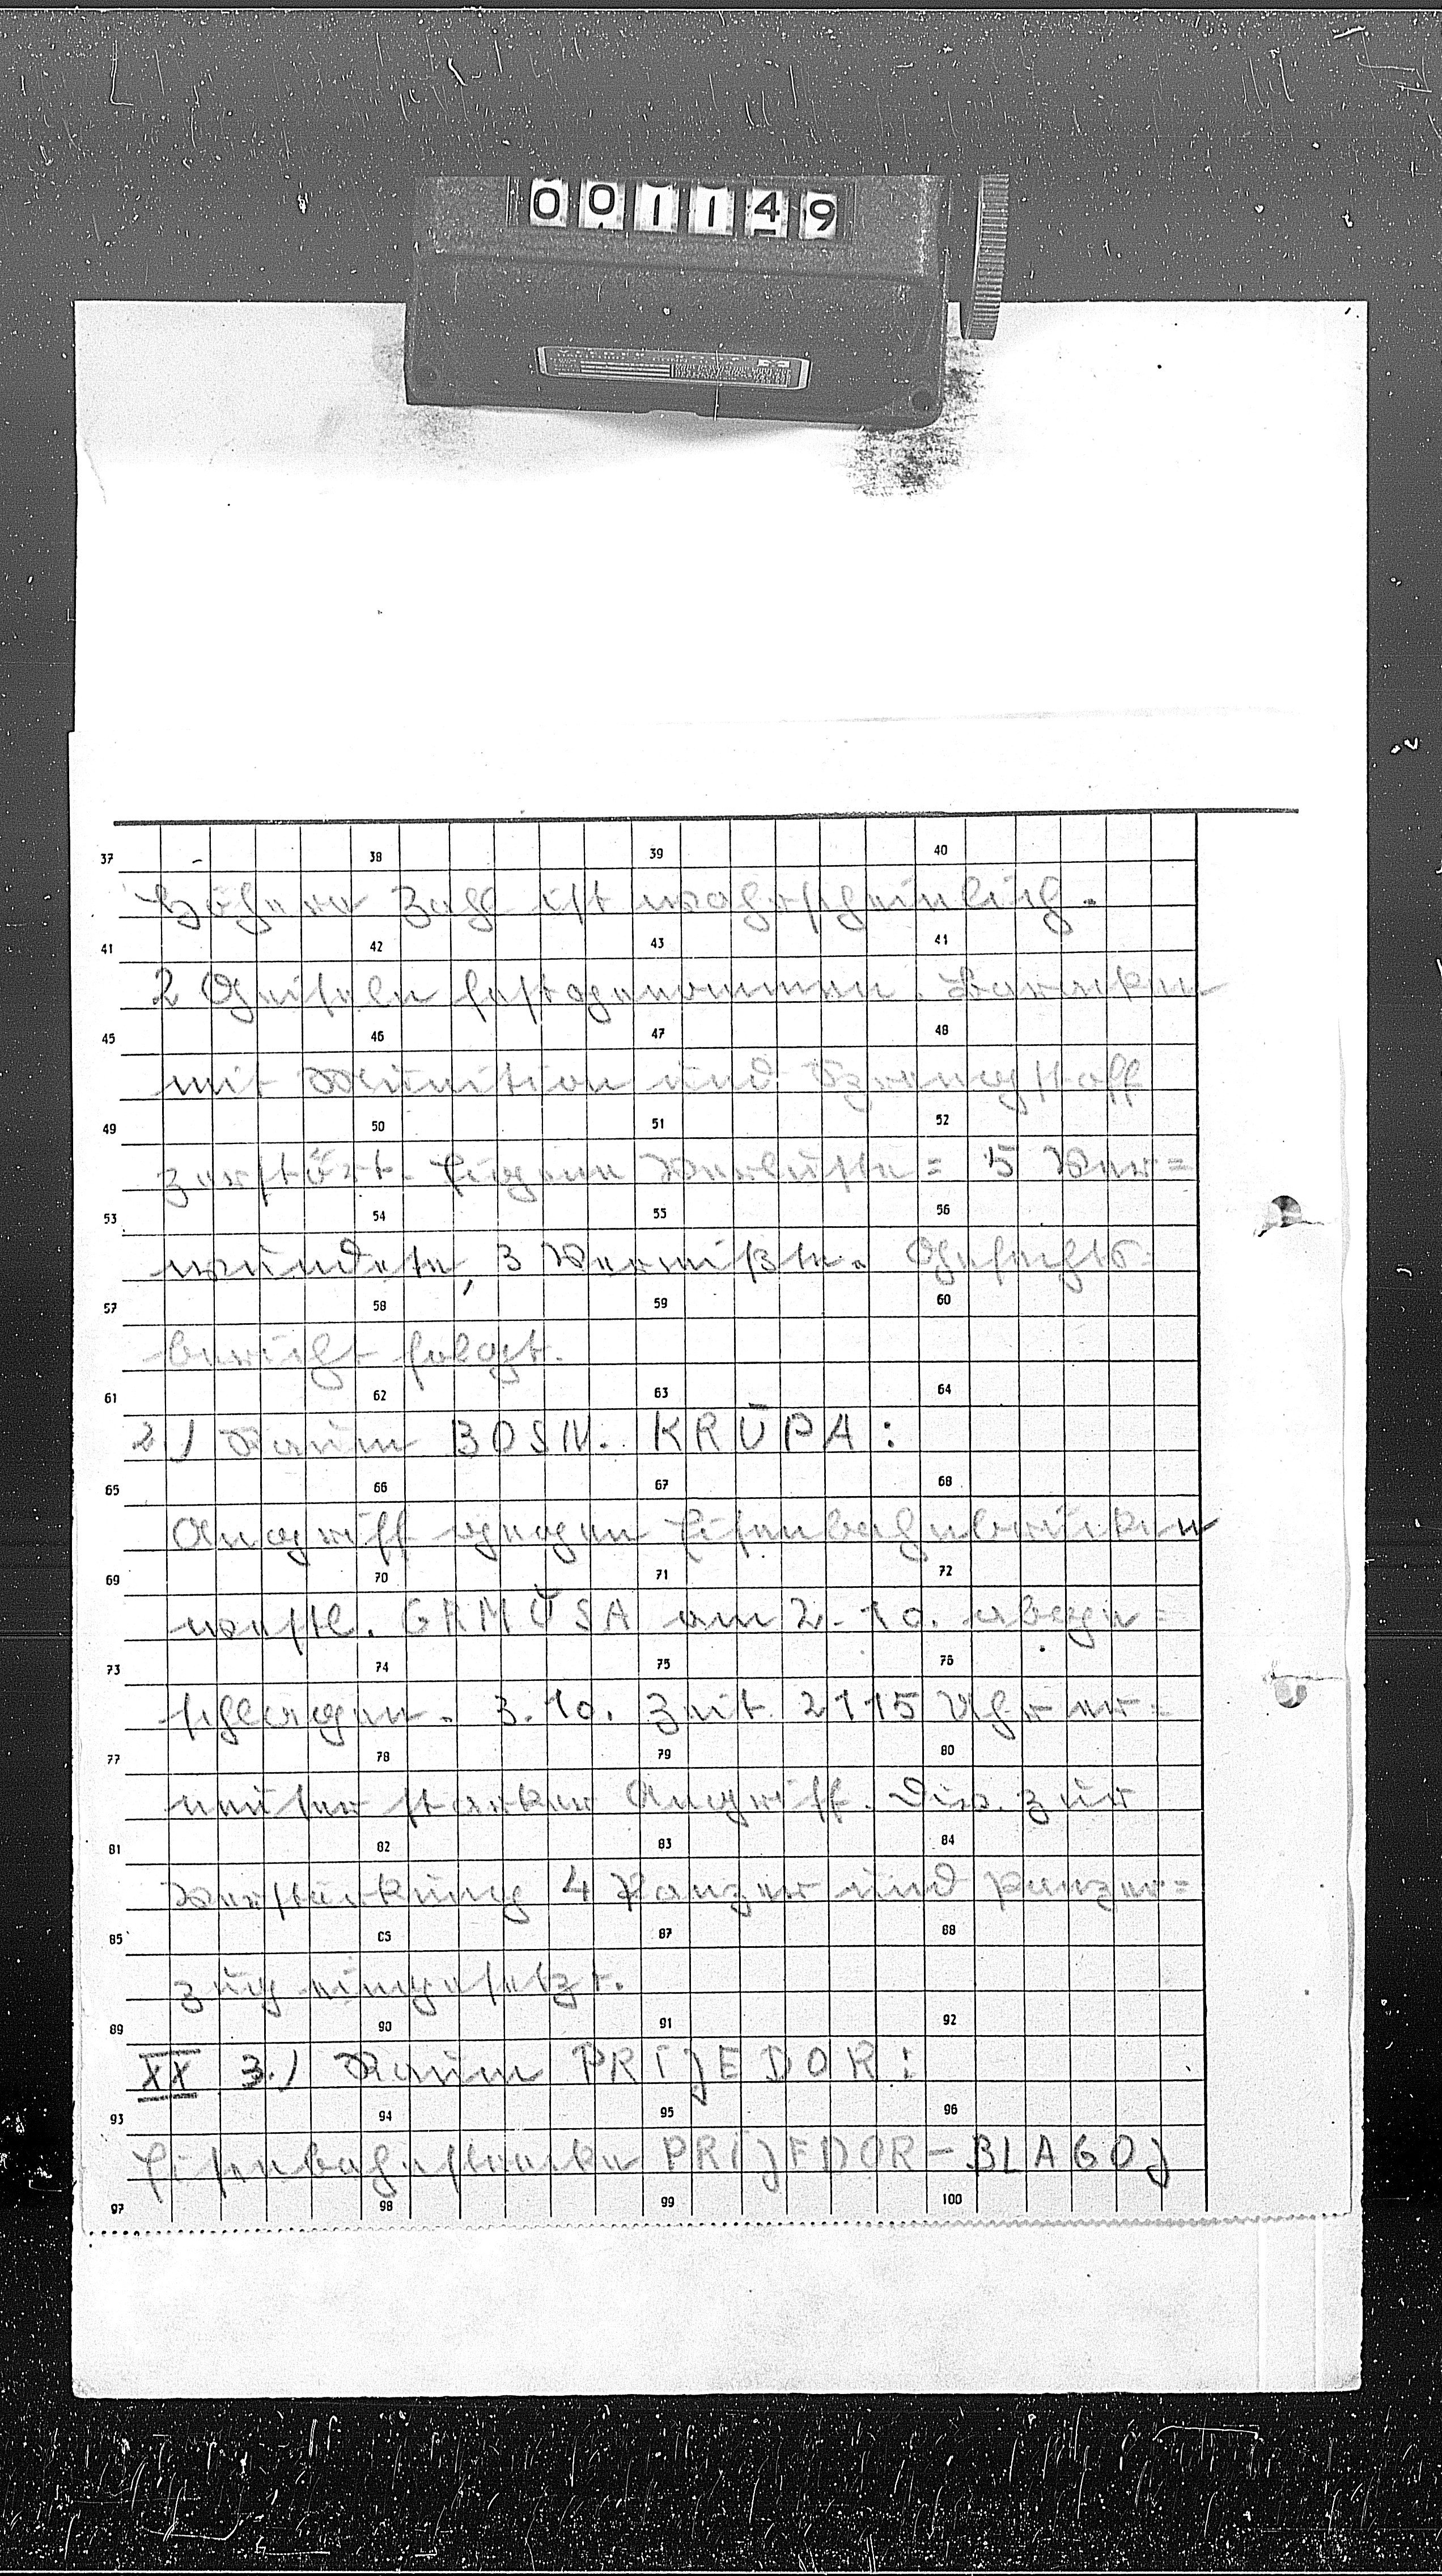 001149
37 38 39 40
Höhere Zahl ist wahrscheinlich.
41 42 43 41
2 Geiseln festgenommen. Baracken
45 46 47 48
mit Munition und Sprengstoff
49 50 51 52
zerstört. Eigene Verluste = 5 Ver=
53 54 55 56
wundete, 3 Vermißte. Gefechts-
57 58 59 60
bericht folgt.
61 62 63 64
2.) Raum BOSN. KRŪPA:
65 66 67 68
Angriff gegen Eisenbahnbrücken
69 70 71 72
westl. GRMŬSA am 2.10. abge=
73 74 75 76
schlagen. 3.10. Zeit 2115 Uhr er=
77 78 79 80
neuter starker Angriff. Div. zur
81 82 83 84
Verstärkung 4 Panzer und Panzer=
85 87 88
zug eingesetzt.
89 90 91 92
XX 3.) Raum PRIJEDOR:
93 94 95 96
Eisenbahnstrecke PRIJEDOR-BLAGOJ
97 98 99 100